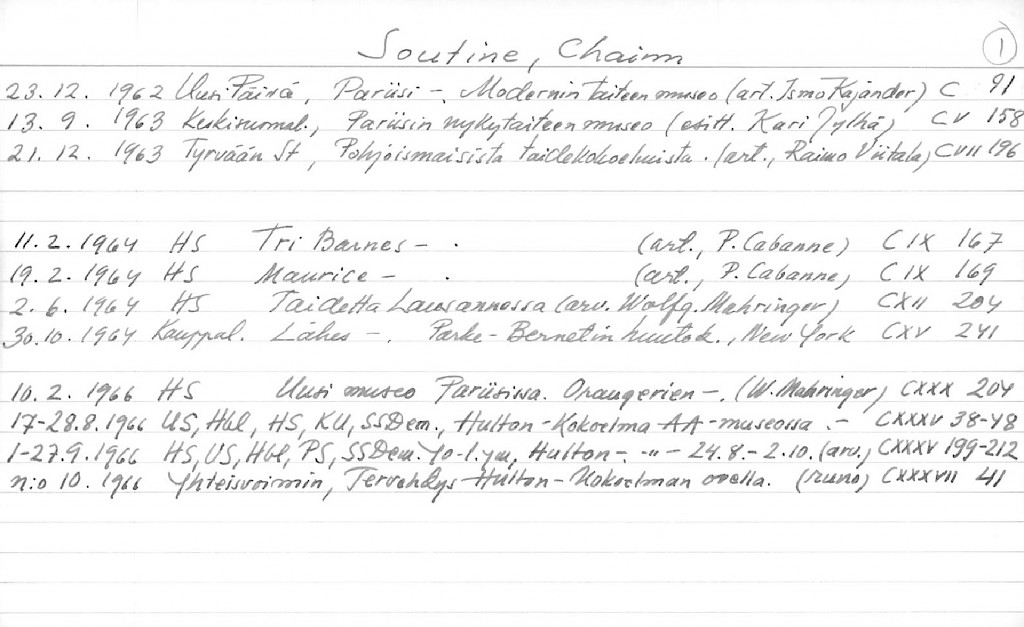 Soutine, Chaim
1
23. 12. 1962 Uusi Päivä, Pariisi -. Modernin taiteen museo (art. Ismo Kajander) C 91
13. 9. 1963 Keskisuomal., Pariisin nykytaiteen museo (esitt. Kari Jylhä) CV 158
21. 12. 1963 Tyrvään St, Pohjoismaisista taidekokoelmista. (art., Raimo Viitala) CVII 196
11. 2. 1964 HS Tri Barnes - . (art., P. Cabanne) CIX 167
19. 2. 1964 HS Maurice - . (art., P. Cabanne) CIX 169
2. 6. 1964 HS Taidetta Lausannessa (arv. Wolfg. Mehringer) CXII 204
30. 10. 1964 Kauppal. Lähes -. Parke-Bernetin huutok., New York CXV 241
10. 2. 1966 HS Uusi museo Pariisissa. Orangerien -. (W. Mehringer) CXXX 204
17-28.8.1966 US, Hbl, HS, KU, SSDem., Hulton-Kokoelma AA-museossa .- CXXXV 38-48
1-27.9.1966 HS, US, Hbl, PS, SSDem. Yo-l. ym, Hulton-. -"- 24.8.-2.10. (arv.) CXXXV 199-212
n:o 10. 1966 Yhteisvoimin, Tervehdys Hulton-Kokoelman ovella. (runo) CXXXVII 41